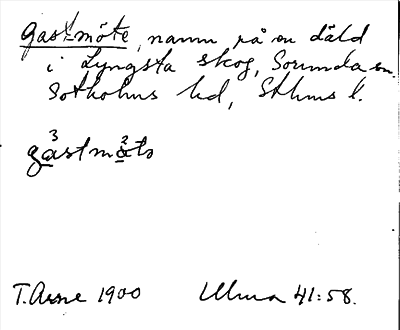 Gastmöte, namn på en däld
i Lyngsta skog, Sorunda sn.
Sotholms hd, Sthms l.
gastmöte
T. Arne 1900 Ulma 41:58.